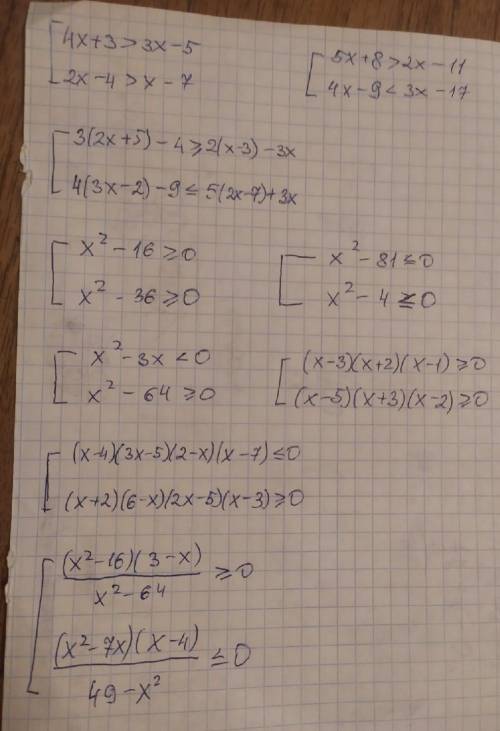 4x+3>3x-5
2x-4>x-7
5x+8>2x-11
4x-9<3x-17
3(2x+5)-4≥2(x-3)-3x
4(3x-2)-9≤5(2x-7)+3x
x²-16≥0
x²-36≥0
x²-81≤0
x²-4≤0
x²-3x<0
x²-64≥0
(x-3)(x+2)(x-1)≥0
(x-5)(x+3)(x-2)≥0
(x-4)(3x-5)(2-x)(x-7)≤0
(x+2)(6-x)(2x-5)(x-3)≥0
(x²-16)(3-x)
≥0
x²-64
(x²-7x)(x-4)
≤0
49-x²